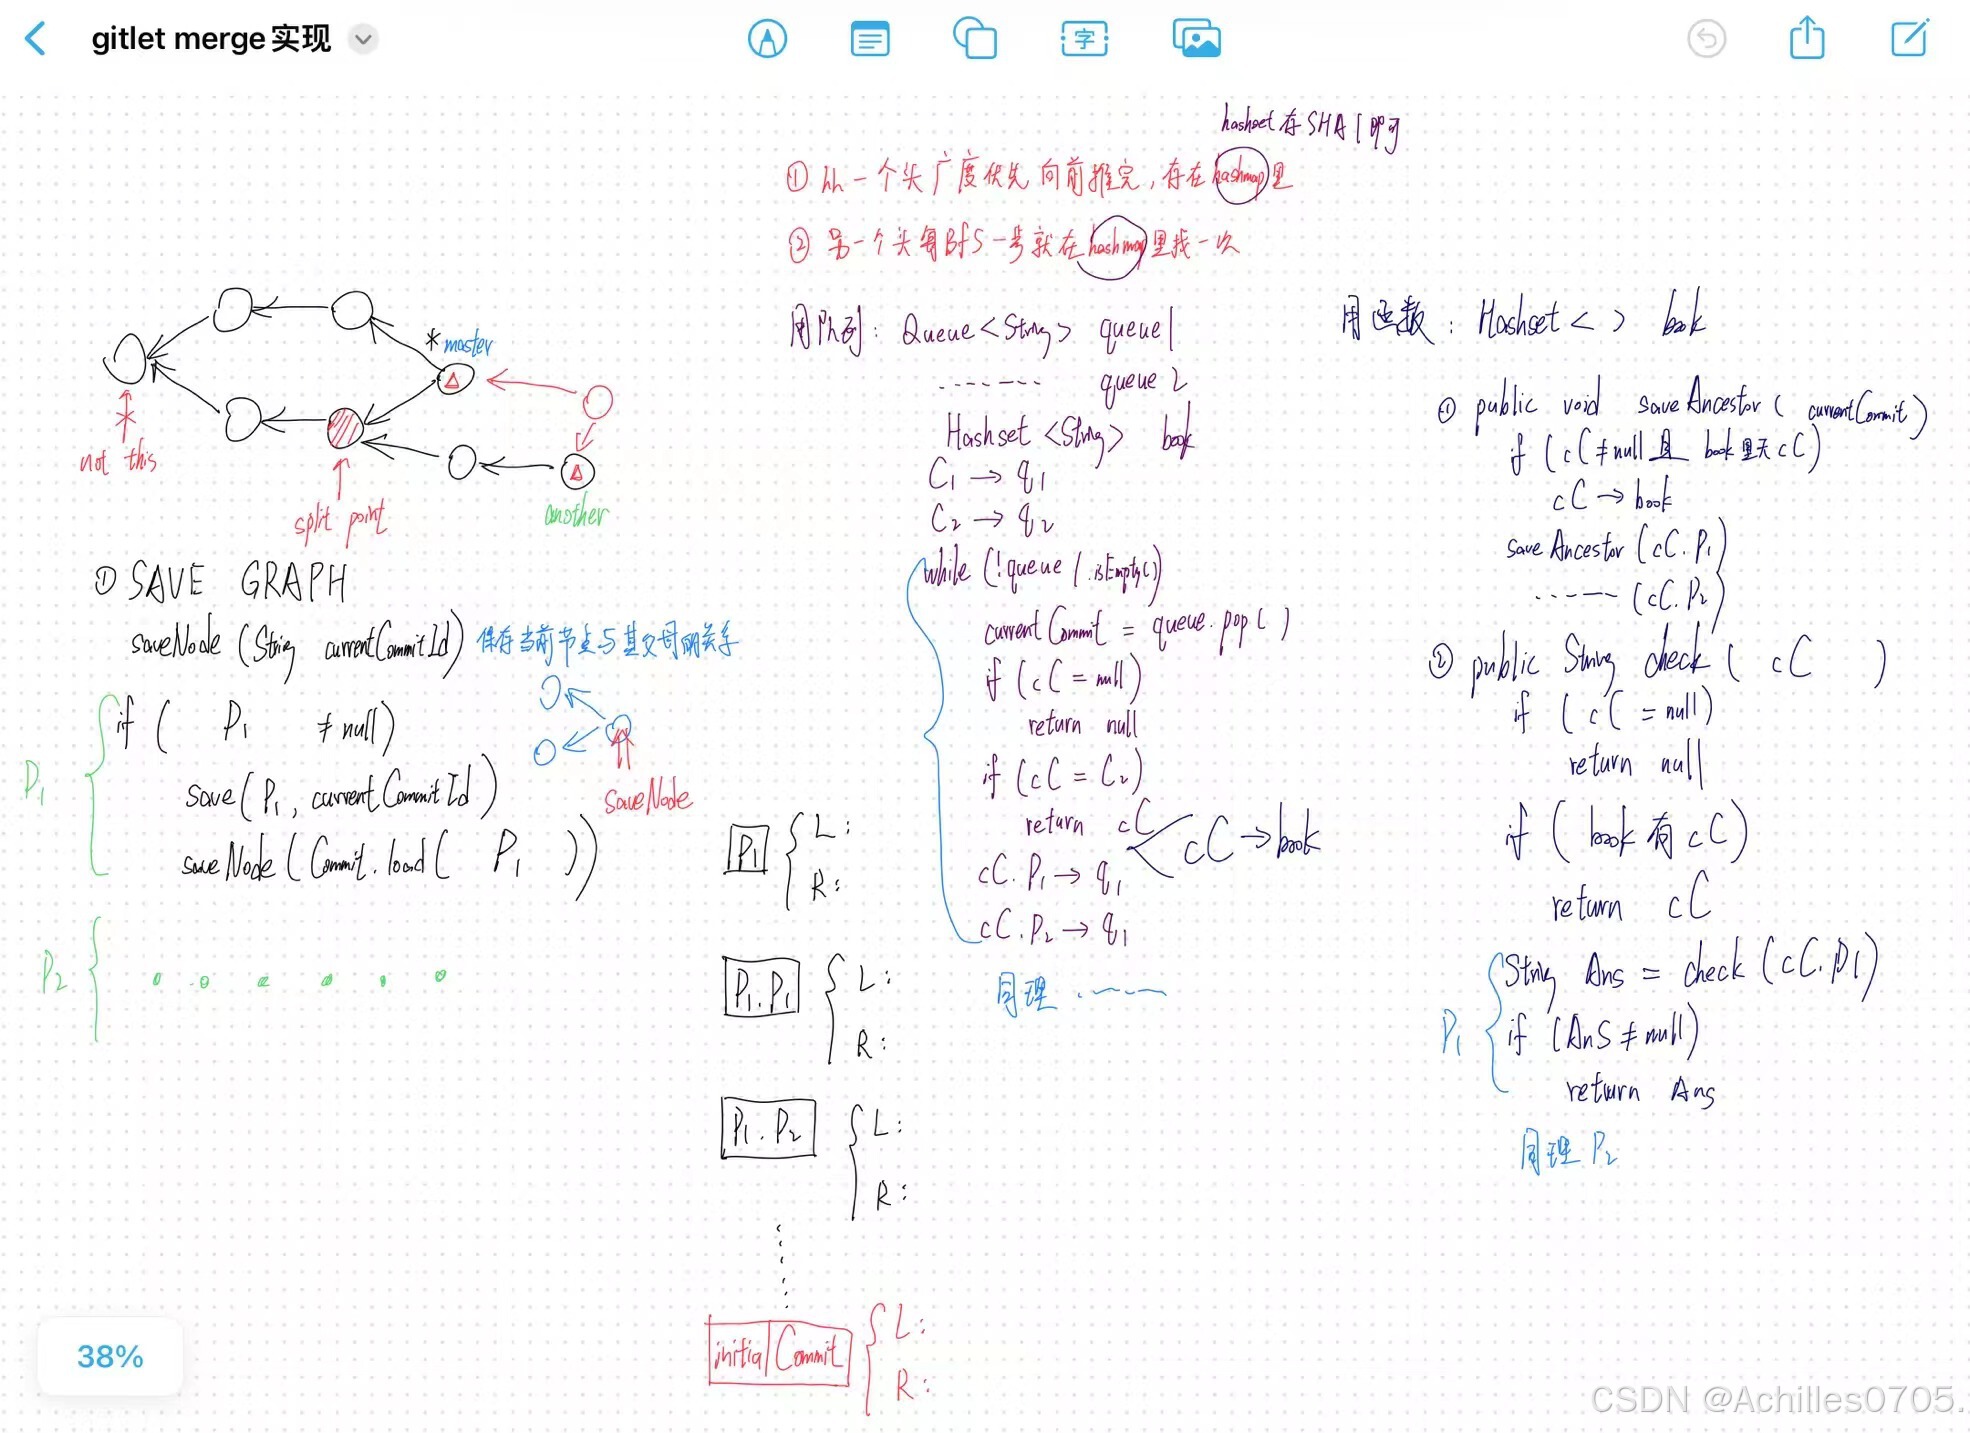 gitlet merge实现
字
hashset 存SHA1即可
① hh一个头广度优先向前推完，存在hashmap里
② 另一个头每BfS一步就在hashmap里找一次
*master
not this
split point
another
① SAVE GRAPH
saveNode (String currentCommitId) 保存当前节点与其父母的关系
P₁
if ( P₁ ≠ null)
save(P₁, currentCommitId)
saveNode (Commit.load( P₁ ))
saveNode
P₂
P₁ L:
R:
P₁.P₁ L:
R:
P₁.P₂ L:
R:
initial Commit L:
R:
用队列: Queue<String> queue1
------- queue 2
Hashset <String> book
C₁ → q₁
C₂ → q₂
while (!queue1.isEmpty())
currentCommit = queue.pop( )
if (cC = null)
return null
if (cC = C₂)
return cC
cC → book
cC.P₁ → q₁
cC.P₂ → q₁
同理 ·······
用函数: Hashset < > book
① public void saveAncestor ( currentCommit)
if (cC≠null 且 book里无cC)
cC → book
saveAncestor (cC.P₁)
------ (cC.P₂)
② public String check ( cC )
if ( cC = null)
return null
if ( book有cC)
return cC
P₁
String Ans = check (cC.P1)
if (AnS ≠ null)
return Ans
同理 P₂
38%
CSDN @Achilles0705.